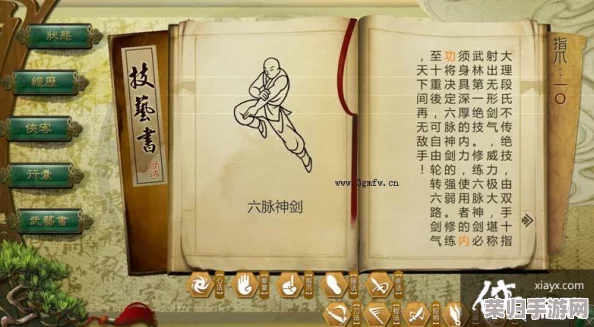 狀態
經歷
俠客
行囊
武藝書
技藝書
六脉神剑
www.3gmfw.cn
指爪：一〇
大理段氏不传绝技，由双手十指
射出无形剑气，威力极大，堪称
武林第一绝技。修练六脉神剑必
须身具深厚的内力，使用者的内
功将决定六脉神剑的强弱。修练
至十重後，可自由轮转六路剑气
，天下间再无敌手！
xiayx.com
荣归手游网